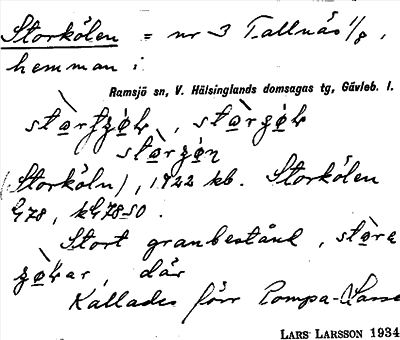 Storkölen = nr 3 Tallnäs 1/8,
hemman i
Ramsjö sn, V. Hälsinglands domsagas tg, Gävleb. l.
(Storköln), 1922 kb. Storkölen
G78, kG7850.
Stort granbestånd, stora
där
Kallades förr Pompa-Lasse
LARS LARSSON 1934